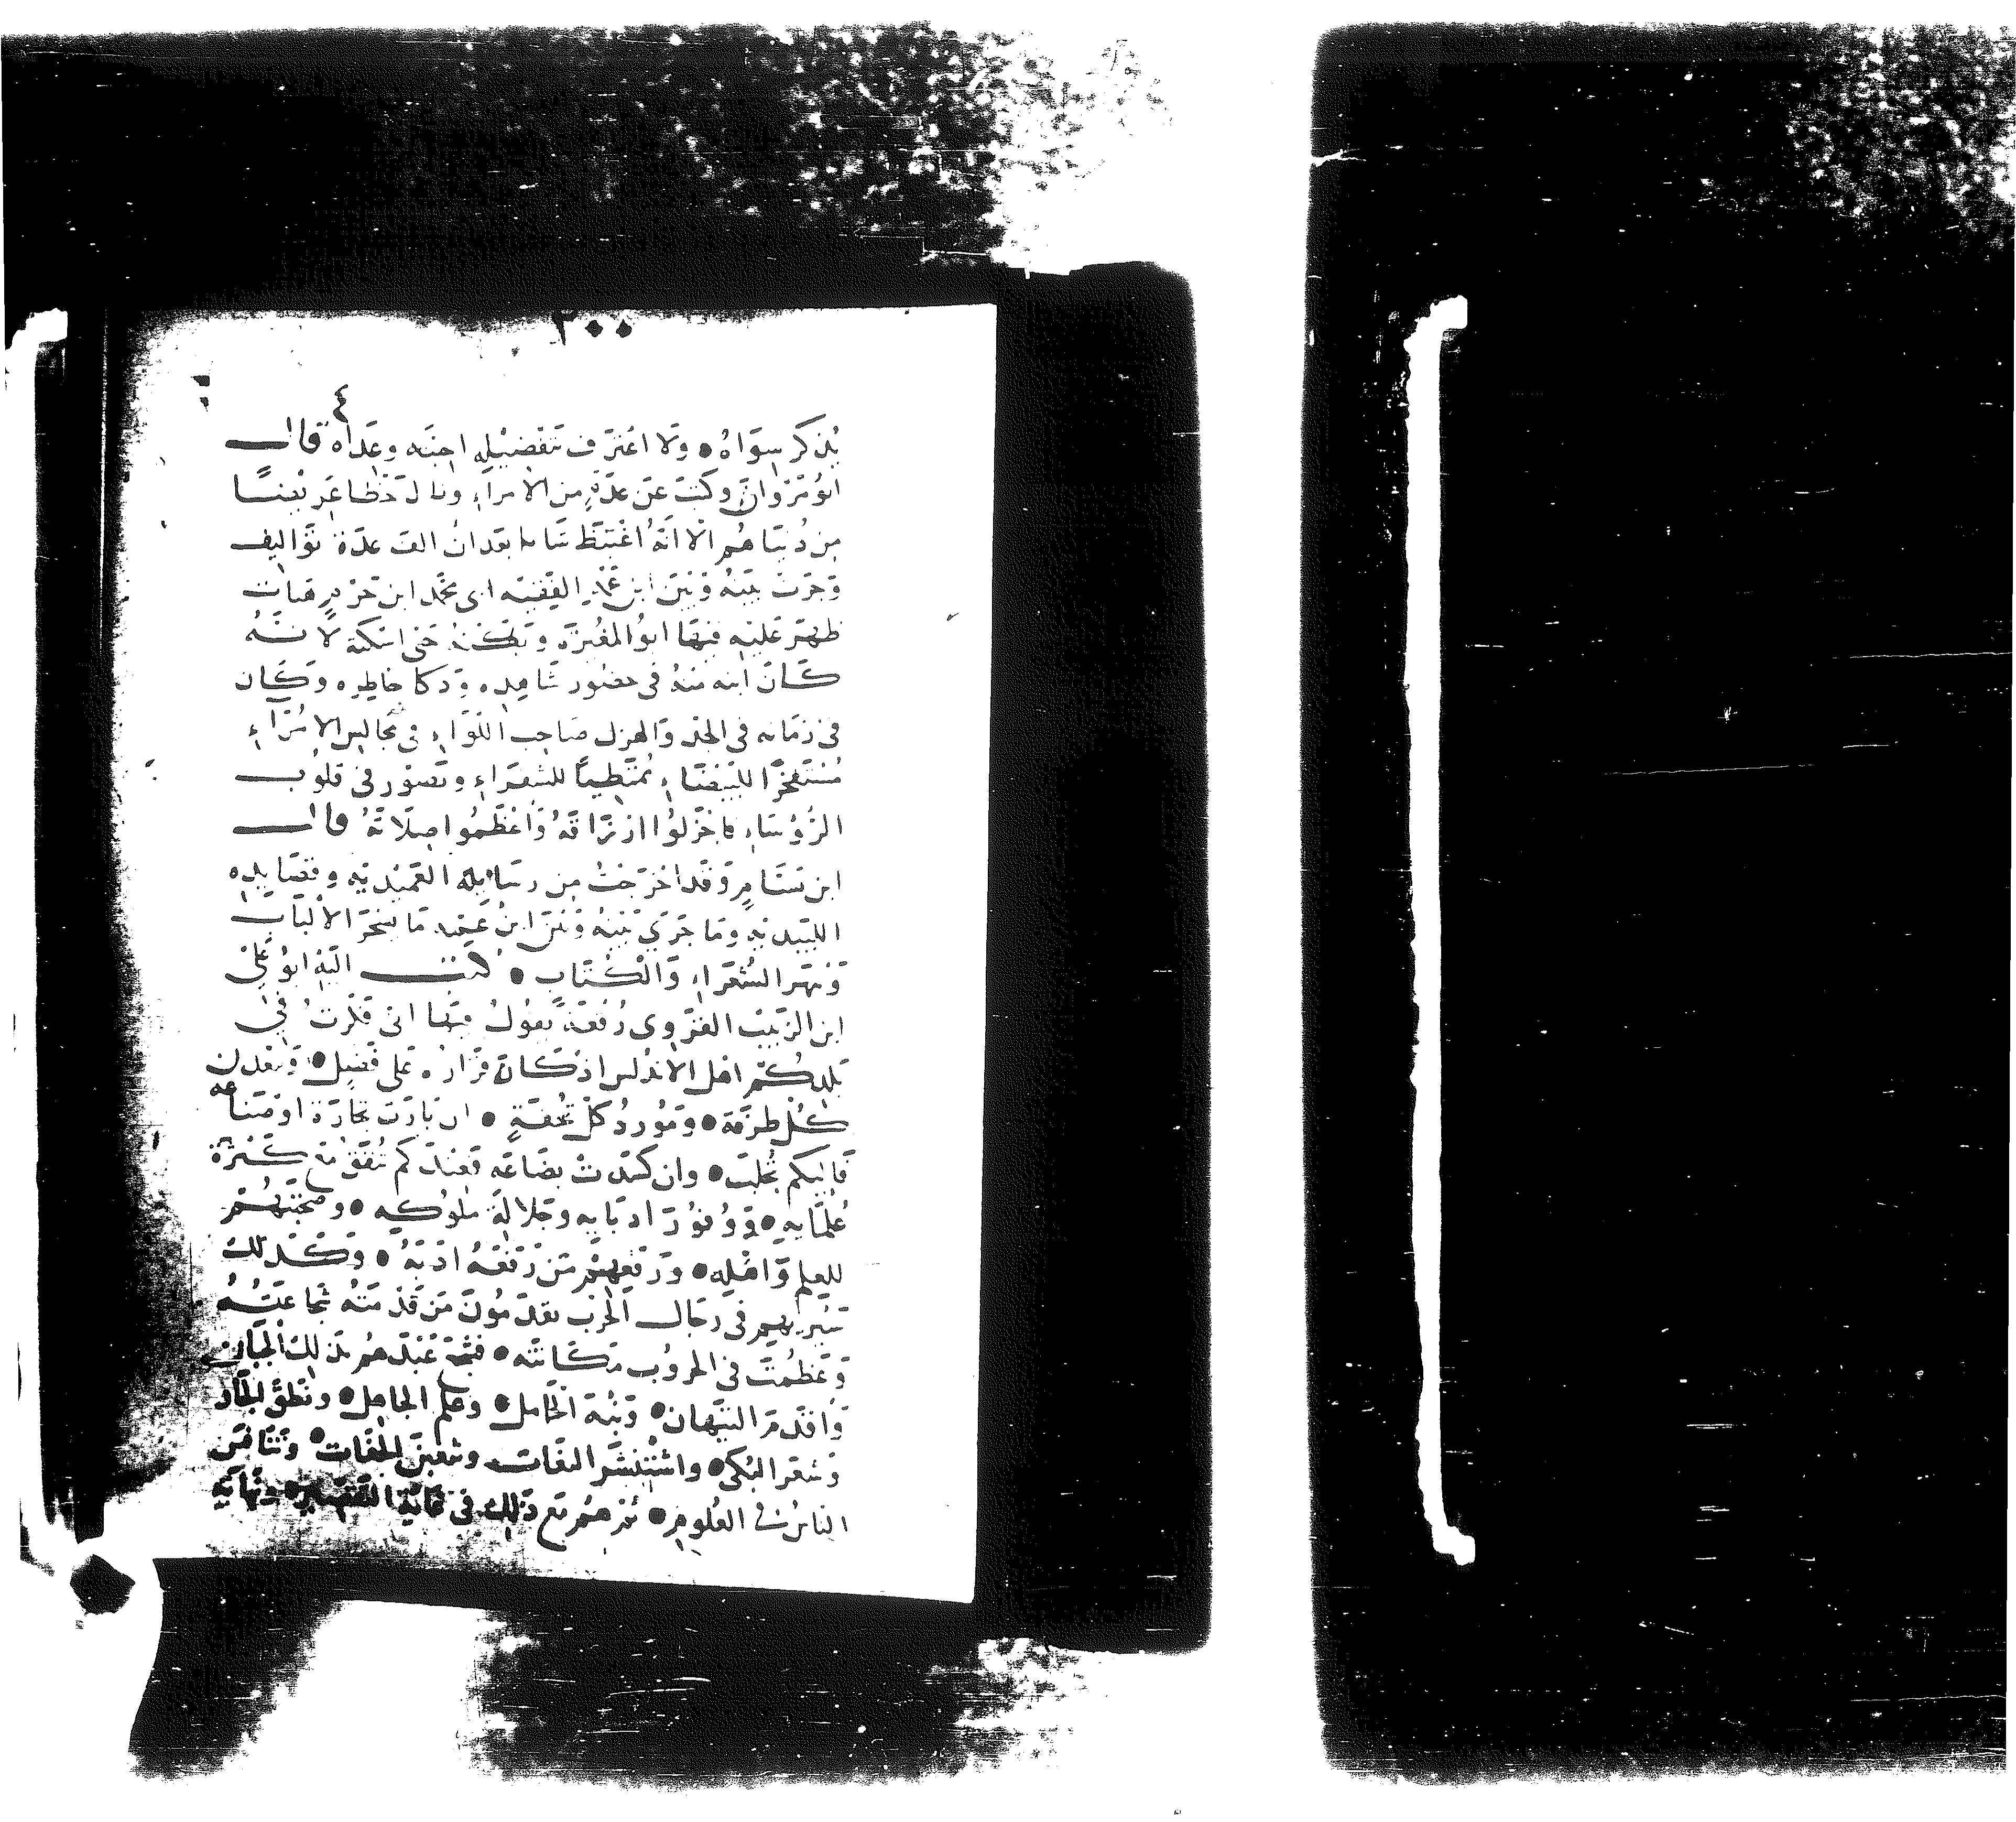 ٢٠٠
يذكر سواه ولا اعترف بتفضيله احبته وعداه قال
ابو مروان وكتب عن عدة من الامراء ونال حظا عريضا
من دنياهم الا انه اغتبط شابا بعد ان الف عدة تواليف
وجرت بينه وبين ابن عمه الفقيه ابى محمد ابن حزم هنات
ظهر عليه فيها ابو المغيرة وبكته حتى اسكته لانه
كان ابنه منه فى حضور شاهده وذكا خاطره وكان
فى زمانه فى الجد والهزل صاحب اللواء فى مجالس الامراء
للشعراء وتصور فى قلوب
الرؤساء فاجزلوا ارزاقه واعظموا صلاته قال
ابن بسام وقد اخرجت من رسائله العميدية وقصايده
اللبيدية وما جرى بينه وبين ابن عمه ما سحر الالباب
وبهر الشعراء والكتاب كتب اليه ابو على
ابن الربيب القروى رقعة يقول فيها انى فكرت فى
بلدكم اهل الاندلس اذ كان قرارة كل فضل ومعدن
كل طرفة ومورد كل تحفة ان بارت تجارة او صناعه
فاليكم تجلب وان كسدت بضاعه فعندكم تنفق مع كثرة
علمايه ووفور ادبايه وجلالة ملوكه ومحبتهم
للعلم واهله ورفعهم من رفعه ادبه وكذلك
سيرتهم فى رجال الحرب يقدمون من قدمته شجاعته
وعظمت فى الحروب مكانته فشجع عندهم بذلك الجبان
واقدم الهيبان ونبه الخامل وعلم الجاهل ونطق
وشعر البكى واستنسر البغاث وتنافس
الناس فى العلوم ثم هم مع ذلك فى غاية التقصير ونهاية